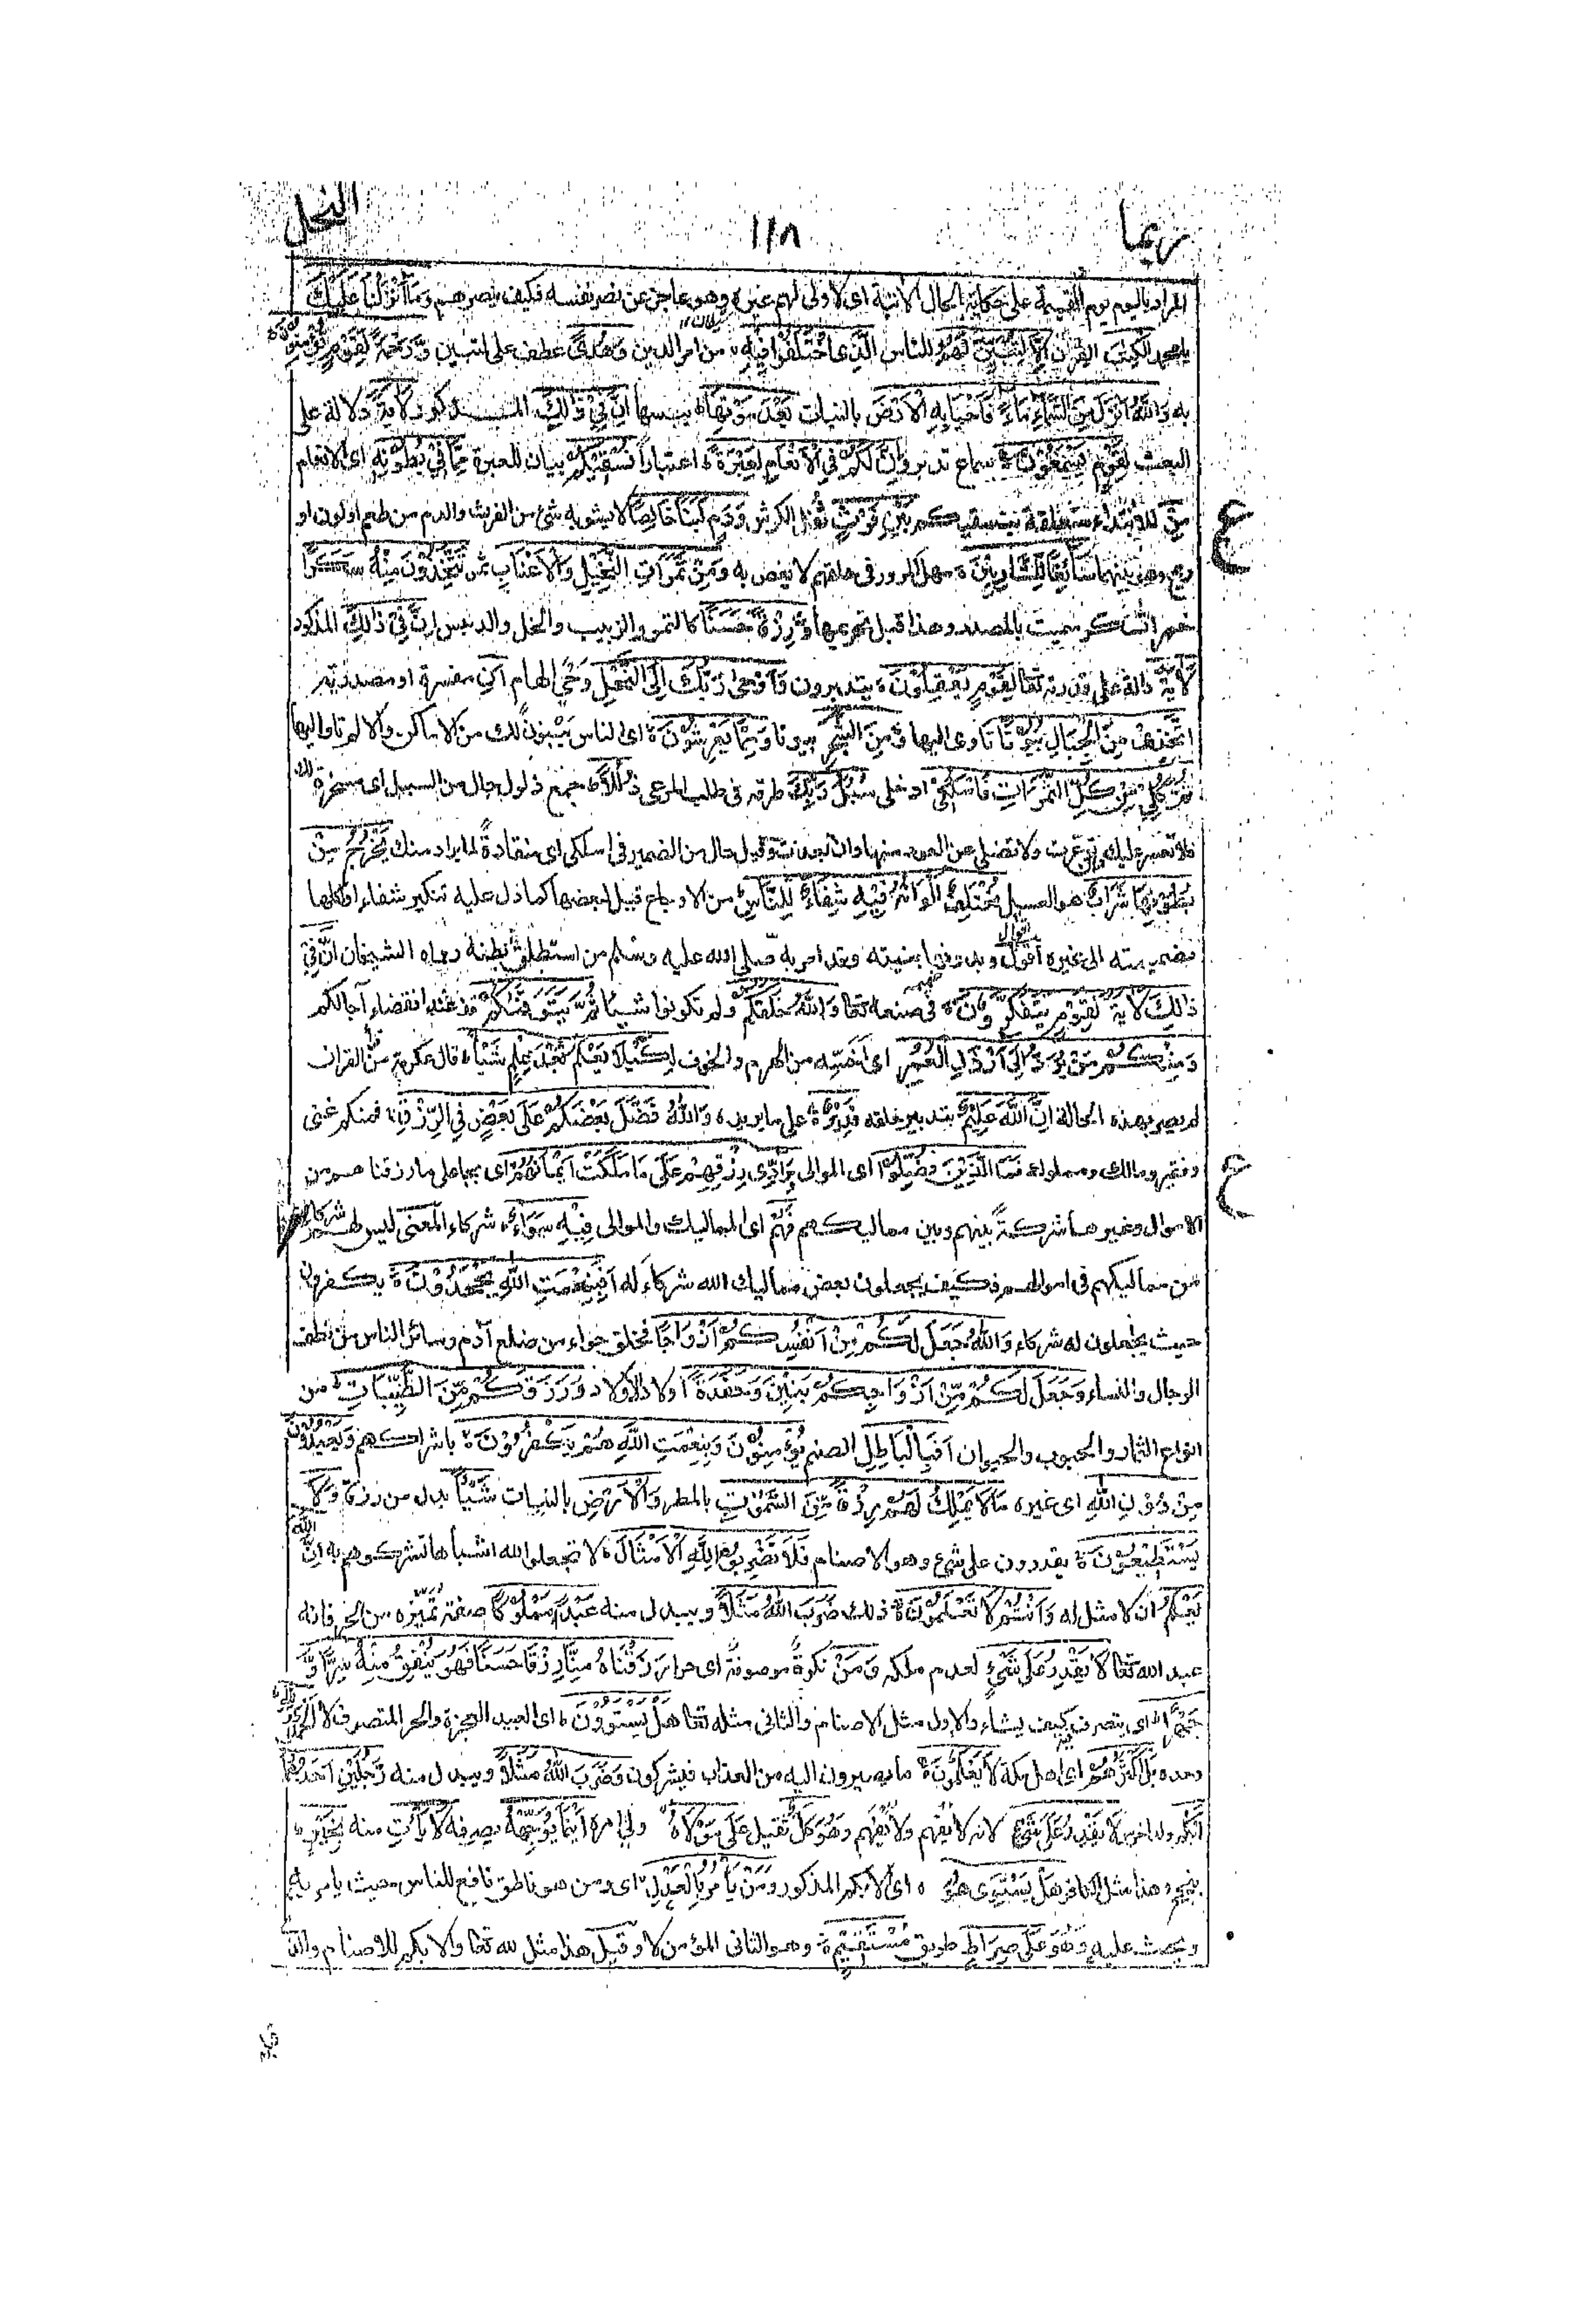 ربما ١١٨ النحل
المراد باليوم يوم القيمة على حكاية الحال الاتية اى لا ولى لهم غيره وهو عاجز عن نصر نفسه فكيف ينصرهم وَمَا اَنْزَلْنَا عَلَيْكَ
يا محمد الْكِتٰبَ القرآن اِلَّا لِتُبَيِّنَ لَهُمُ للناس الَّذِى اخْتَلَفُوْا فِيْهِ من امر الدين وَهُدًى عطف على لتبين وَّرَحْمَةً لِّقَوْمٍ يُّؤْمِنُوْنَ
به وَاللّٰهُ اَنْزَلَ مِنَ السَّمَاءِ مَاءً فَاَحْيَا بِهِ الْاَرْضَ بالنبات بَعْدَ مَوْتِهَا يبسها اِنَّ فِيْ ذٰلِكَ المذكور لَاٰيَةً دلالة على
البعث لِّقَوْمٍ يَّسْمَعُوْنَ سماع تدبر وَاِنَّ لَكُمْ فِي الْاَنْعَامِ لَعِبْرَةً اعتبارا نُسْقِيْكُمْ بيان للعبرة مِّمَّا فِيْ بُطُوْنِهٖ اى الانعام
مِنْ للابتداء متعلقة بنسقيكم بَيْنِ فَرْثٍ ثفل الكرش وَّدَمٍ لَّبَنًا خَالِصًا لا يشوبه شئ من الفرث والدم من طعم او لون او
ريح وهو بينهما سَآئِغًا لِّلشَّارِبِيْنَ سهل المرور فى حلقهم لا يغص به وَمِنْ ثَمَرَاتِ النَّخِيْلِ وَالْاَعْنَابِ ثمر تَتَّخِذُوْنَ مِنْهُ سَكَرًا
خمرا تسكر سميت بالمصدر وهذا قبل تحريمها وَّرِزْقًا حَسَنًا كالتمر والزبيب والخل والدبس اِنَّ فِيْ ذٰلِكَ المذكور
لَاٰيَةً دالة على قدرته تعا لِّقَوْمٍ يَّعْقِلُوْنَ يتدبرون وَاَوْحٰى رَبُّكَ اِلَى النَّحْلِ وحى الهام اَنِ مفسرة او مصدرية
اتَّخِذِيْ مِنَ الْجِبَالِ بُيُوْتًا تاوى اليها وَّمِنَ الشَّجَرِ بيوتا وَمِمَّا يَعْرِشُوْنَ اى الناس يبنون لك من الاماكن والا لم تاو اليها
ثُمَّ كُلِيْ مِنْ كُلِّ الثَّمَرَاتِ فَاسْلُكِيْ ادخلى سُبُلَ رَبِّكِ طرقه فى طلب المرعى ذُلُلًا جمع ذلول حال من السبل اى مسخرة لك
فلا تعسر عليك وان توعرت ولا تضلى عن العود منها وان بعدت وقيل حال من الضمير فى اسلكى اى منقادة لما يراد منك يَخْرُجُ مِنْ
بُطُوْنِهَا شَرَابٌ هو العسل مُّخْتَلِفٌ اَلْوَانُهٗ فِيْهِ شِفَاءٌ لِّلنَّاسِ من الاوجاع قيل لبعضها كما دل عليه تنكير شفاء او لكلها
بضميمته الى غيره اقول وبدونها بنيته وقد امر به صلى الله عليه وسلم من استطلق بطنه رواه الشيخان اِنَّ فِيْ
ذٰلِكَ لَاٰيَةً لِّقَوْمٍ يَّتَفَكَّرُوْنَ فى صنعه تعا وَاللّٰهُ خَلَقَكُمْ ولم تكونوا شيئا ثُمَّ يَتَوَفّٰكُمْ عند انقضاء آجالكم
وَمِنْكُمْ مَّنْ يُّرَدُّ اِلٰى اَرْذَلِ الْعُمُرِ اى اخسه من الهرم والخرف لِكَيْلَا يَعْلَمَ بَعْدَ عِلْمٍ شَيْئًا قال عكرمة من قرأ القران
لم يصر بهذه الحالة اِنَّ اللّٰهَ عَلِيْمٌ بتدبير خلقه قَدِيْرٌ على ما يريده وَاللّٰهُ فَضَّلَ بَعْضَكُمْ عَلٰى بَعْضٍ فِي الرِّزْقِ فمنكم غنى
وفقير ومالك ومملوك فَمَا الَّذِيْنَ فُضِّلُوْا اى الموالى بِرَآدِّيْ رِزْقِهِمْ عَلٰى مَا مَلَكَتْ اَيْمَانُهُمْ اى بجاعلى ما رزقناهم من
الاموال وغيرها شركة بينهم وبين مماليكهم فَهُمْ اى المماليك والموالى فِيْهِ سَوَآءٌ شركاء المعنى ليس لهم شركاء
من مماليكهم فى اموالهم فكيف يجعلون بعض مماليك الله شركاء له اَفَبِنِعْمَتِ اللّٰهِ يَجْحَدُوْنَ يكفرون
حيث يجعلون له شركاء وَاللّٰهُ جَعَلَ لَكُمْ مِّنْ اَنْفُسِكُمْ اَزْوَاجًا فخلق حواء من ضلع آدم وسائر الناس من نطف
الرجال والنساء وَجَعَلَ لَكُمْ مِّنْ اَزْوَاجِكُمْ بَنِيْنَ وَحَفَدَةً اولاد الاولاد وَرَزَقَكُمْ مِّنَ الطَّيِّبَاتِ من
انواع الثمار والحبوب والحيوان اَفَبِالْبَاطِلِ الصنم يُؤْمِنُوْنَ وَبِنِعْمَتِ اللّٰهِ هُمْ يَكْفُرُوْنَ باشراكهم وَيَعْبُدُوْنَ
مِنْ دُوْنِ اللّٰهِ اى غيره مَا لَا يَمْلِكُ لَهُمْ رِزْقًا مِّنَ السَّمٰوٰتِ بالمطر وَالْاَرْضِ بالنبات شَيْئًا بدل من رزقا وَّلَا
يَسْتَطِيْعُوْنَ يقدرون على شئ وهو الاصنام فَلَا تَضْرِبُوْا لِلّٰهِ الْاَمْثَالَ لا تجعلوا لله اشباها تشركوهم به اِنَّ اللّٰهَ
يَعْلَمُ ان لا مثل له وَاَنْتُمْ لَا تَعْلَمُوْنَ ذلك ضَرَبَ اللّٰهُ مَثَلًا ويبدل منه عَبْدًا مَّمْلُوْكًا صفة تميزه من الحر فانه
عبد الله تعا لَا يَقْدِرُ عَلٰى شَيْءٍ لعدم ملكه وَمَنْ نكرة موصوفة اى حرا رَزَقْنَاهُ مِنَّا رِزْقًا حَسَنًا فَهُوَ يُنْفِقُ مِنْهُ سِرًّا وَّ
جَهْرًا اى يتصرف كيف يشاء والاول مثل الاصنام والثانى مثله تعا هَلْ يَسْتَوُوْنَ اى العبيد العجزة والحر المتصرف لا اَلْحَمْدُ لِلّٰهِ
وحده بَلْ اَكْثَرُهُمْ اى اهل مكة لَا يَعْلَمُوْنَ ما يصيرون اليه من العذاب فيشركون وَضَرَبَ اللّٰهُ مَثَلًا ويبدل منه رَّجُلَيْنِ اَحَدُهُمَا
اَبْكَمُ ولد اخرس لَا يَقْدِرُ عَلٰى شَيْءٍ لانه لا يفهم ولا يفهم وَّهُوَ كَلٌّ ثقيل عَلٰى مَوْلَاهُ ولى امره اَيْنَمَا يُوَجِّهْهُ يصرفه لَا يَاْتِ منه بِخَيْرٍ
بنجح وهذا مثل الكافر هَلْ يَسْتَوِى هُوَ اى الابكم المذكور وَمَنْ يَّاْمُرُ بِالْعَدْلِ اى ومن هو ناطق نافع للناس حيث يامر به
ويحث عليه وَهُوَ عَلٰى صِرَاطٍ طريق مُّسْتَقِيْمٍ وهو الثانى المؤمن لا وقيل هذا مثل لله تعا والابكم للاصنام والذى